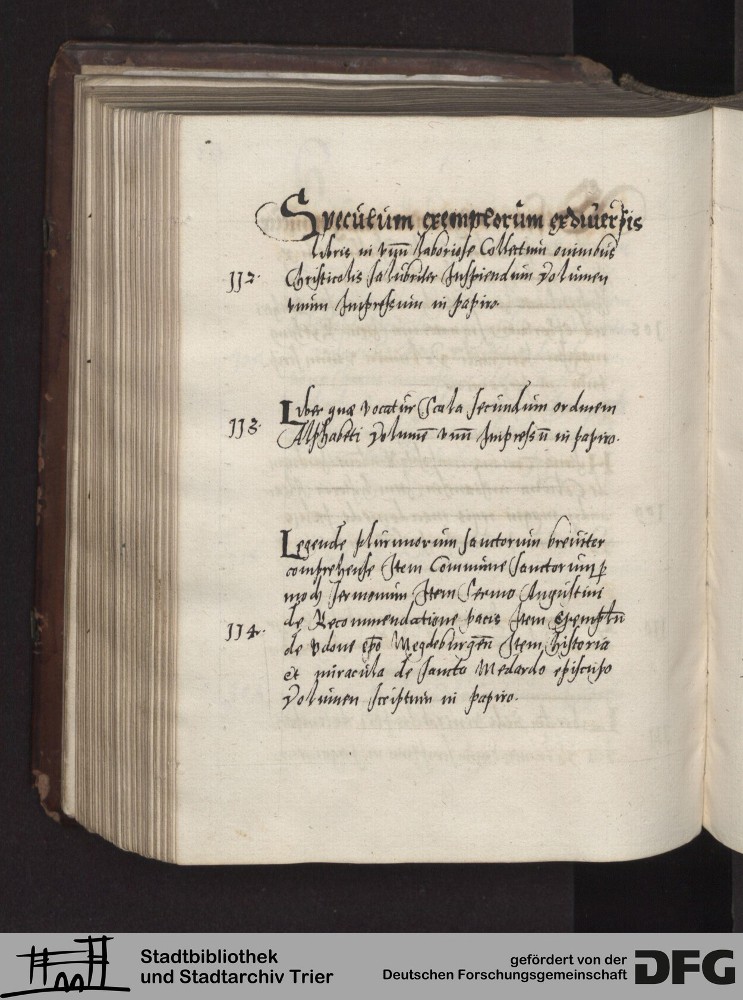 Speculum exemplorum ex diuersis
libris in vnū laboriose Collectum omnibus
112. Christicolis salubriter Inspiciendum Volumen
vnum Impressum in papiro.
Liber qui vocatur Scala secundum ordinem
113. Alphabeti Volumē vnū Impressū in papiro.
Legende plurimorum sanctorum breuiter
comprehense Item Commune Sanctorum ꝑ
modū sermonum Item Sermo Augustini
de Recommendatione pacis Item Exemplū
114. de vdone epō Megdeburgen̄ Item historia
et miracula de sancto Medardo episcopo
Volumen scriptum in papiro.
Stadtbibliothek
und Stadtarchiv Trier
gefördert von der
Deutschen Forschungsgemeinschaft
DFG